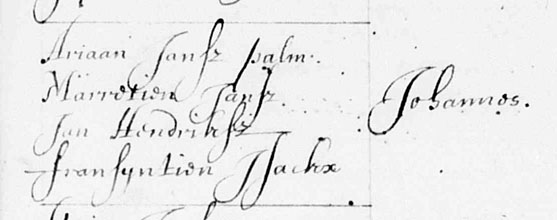 Ariaan Jansz palm.
Marretien Jansz.
Johannes.
Jan Hendriksz
Fransyntien IJsackx